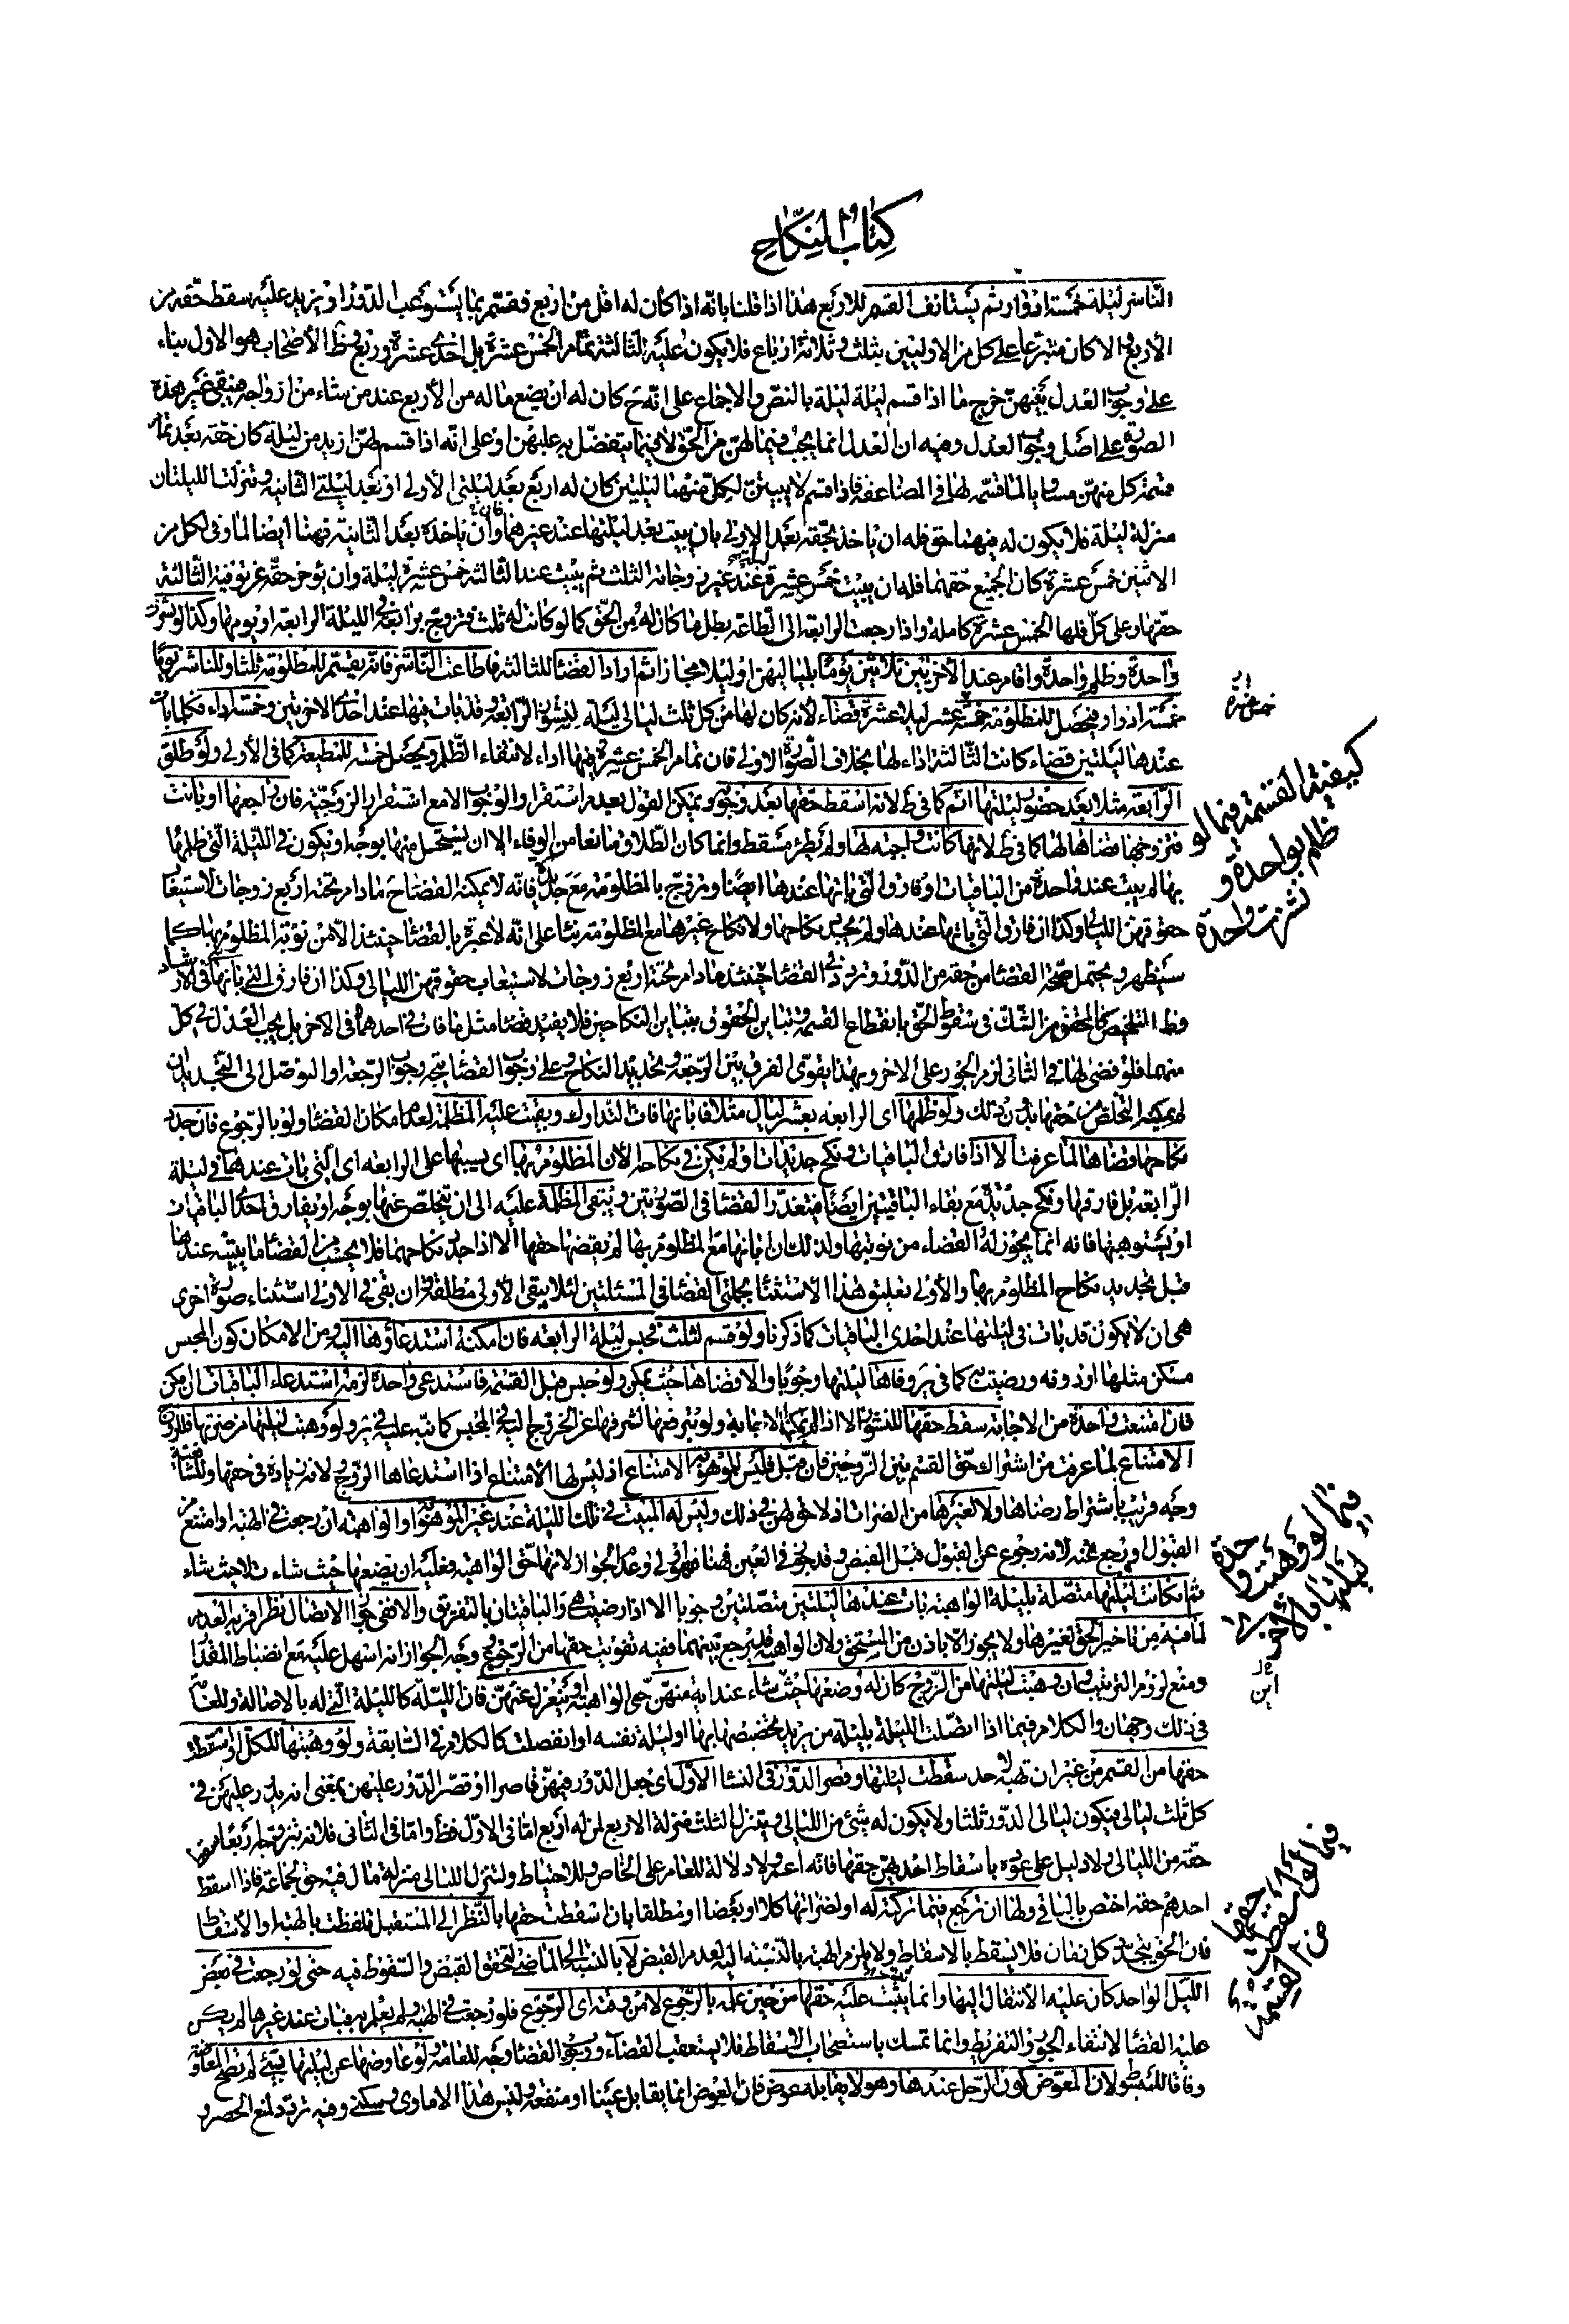 كتاب النكاح
الناشز ليلة خمسة ادوار ثم يستانف القسم للاربع هذا اذا قلنا بانه اذا كان له اقل من اربع فقسم بما يستوعب الدور او يزيد عليه سقط حقه من
الاربع والا كان متبرعا على كل من الاوليين بثلث وثلاثة ارباع فلا يكون عليه للثالثة تمام الخمس عشرة بل احدى عشرة وربع وظ الاصحاب هو الاول بناء
على وجوب العدل بينهن خرج ما اذا قسم ليلة ليلة بالنص والاجماع على انه ح كان له ان يضع ماله من الاربع عند من شاء من ازواجه فيبقى غير هذه
الصورة على اصل وجوب العدل وفيه ان العدل انما يجب فيما لهن من الحق لا فيما يتفضل به عليهن او على انه اذا قسم لهن ازيد من ليلة كان حقه بعد تمام
قسمة كل منهن مساويا لما قسمه لها في المضاعفة فاذا قسم لابيتين لكل منهما ليلتين كان له اربع بعد ليلتي الاولى او بعد ليلتي الثانية وتنزلت الليلتان
منزلة ليلة فلا يكون له فيهما حق فله ان ياخذ بحقه بعد الاولى بان يبيت بعد ليلتها عند غيرهما وان ياخذه بعد الثانية فهنا ايضا لما وفى لكل من
الاثنين خمس عشرة كان الجميع حقهما فله ان يبيت خمس عشرة ليلة عند غير زوجاته الثلث ثم يبيت عند الثالثة خمس عشرة ليلة وان يؤخر حقه عن توفية الثالثة
حقها وعلى كل فلها الخمس عشرة كاملة واذا رجعت الرابعة الى الطاعة بطل ما كان له من الحق كما لو كانت له ثلث فتزوج برابعة في الليلة الرابعة او يومها وكذا لو نشزت
واحدة وظلم واحدة واقام عند الاخريين ثلاثين يوما بلياليهن او ليلا مجازا ثم اراد القضا للثالثة فاطاعت الناشز فانه يقسم للمظلومة ثلثا وللناشز يوما
خمسة ادوار فيحصل للمظلومة خمسة عشر ليلا عشرة قضاء لانه كان لها من كل ثلث ليالي ليلة لنشوز الرابعة وقد بات فيها عند احدى الاخريين وخمسا اداء فكلما بات
عندها ليلتين قضاء كانت الثالثة اداء لها بخلاف الصورة الاولى فان تمام الخمس عشرة فيها اداء لانتفاء الظلم ويحصل خمسة للمطيعة كما في الاولى ولو طلق
الرابعة مثلا بعد حضور ليلتها اثم كما في ط لانه اسقط حقها بعد وجوبه ويمكن القول بعدم استقرار الوجوب الا مع استقرار الزوجية فان راجعها او بانت
فتزوجها قضاها لها كما في ط لانها كانت واجبة لها ولم يطرء مسقط وانما كان الطلاق مانعا من الوفاء الا ان يستحل منها بوجه او يكون في الليلة التي ظلمها
بها لم يبت عند واحدة من الباقيات او فارق التي باتها عندها ايضا وتزوج بالمظلومة مع جديدة فانه لا يمكنه القضا ح مادام تحته اربع زوجات لاستيعاب
حقوقهن الليالي وكذا ان فارق التي باتها عندها ولم يجدد نكاحها ولا نكاح غيرها مع المظلومة بناء على انه لا عبرة بالقضا حينئذ الا من نوبة المظلوم بها كما
سيظهر ويحتمل صحة القضا من حقه من الدور وتردد في القضا حينئذ مادام تحته اربع زوجات لاستيعاب حقوقهن الليالي وكذا ان فارق التي باتها في الارشاد
وظ التلخيص كالمحقق من الشك في سقوط الحق بانقطاع القسمة وتباين الحقوق بتباين النكاحين فلا يفيد قضا مثل ما فات في احدهما في الاخر بل يجب العدل في كل
منهما فلو قضى لها في الثاني لزم الجور على الاخر وبهذا يقوى الفرق بين الرجعة وتجديد النكاح وعلى وجوب القضا يتجه وجوب الرجعة او التوصل الى التجديد ان
لم يمكنه التخلص من حقها بدون ذلك ولو ظلمها اي الرابعة بعشر ليال مثلا فاباتها فات التدارك وبقيت عليه المظلمة لعدم امكان القضا ولو بالرجوع فان جدد
نكاحها قضاها لما عرفت الا اذا فارق الباقيات ونكح جديدات او لم يكن في نكاحه الان المظلوم بها اي بسببها على الرابعة اي التي بات عندها في ليلة
الرابعة بل فارقها ونكح جديدة مع بقاء الباقيتين ايضا فيتعذر القضا في الصورتين وتبقى المظلمة عليه الى ان يتخلص عنها بوجه او يفارق احدى الباقيات
او يستوهبها فانه انما يجوز له القضاء من نوبتها ولذلك ان اباتها مع المظلوم بها لم يقضها حقها الا اذا جدد نكاحهما فلا يحسب من القضا ما يبيته عندها
قبل تجديد نكاح المظلوم بها والاولى تعليق هذا الاستثنا بجملتي القضا في المسئلتين لئلا يبقى الاولى مطلقة فان بقي في الاولى استثناء صورة اخرى
هي ان لا يكون قد بات في ليلتها عند احدى الباقيات كما ذكرنا ولو قسم لثلث فحبس ليلة الرابعة فان امكنه استدعاؤها اليه ومن الامكان كون الحبس
مسكن مثلها او دونه ورضيت به كما في ير وفاها ليلتها وجوبا والا قضاها حيث يمكن ولو حبس قبل القسمة فاستدعى واحدة لزمه استدعاء الباقيات ان امكن
فان امتنعت واحدة من الاجابة سقط حقها للنشوز الا اذا لم يمكنها الاجابة ولو بترفعها لشرفها عن الخروج اليه في الحبس كما نبه عليه في ير ولو وهبت ليلتها من ضرتها فللزوج
الامتناع لما عرفت من اشتراك حق القسم بين الزوجين فان قبل فليس للموهوبة الامتناع اذ ليس لها الامتناع اذا استدعاها الزوج لانه زيادة في حقها وللشافعية
وجه قريب باشتراط رضاها ولا لغيرها من الضرات اذ لا حق لهن في ذلك وليس له المبيت في تلك الليلة عند غير الموهوبة او الواهبة ان رجعت في الهبة او امتنع من
القبول ويرجع بمنه لانه رجوع عن القبول قبل القبض وقد يجوز في العين فهنا فهو اولى وعدم الجواز لانها حق الواهبة فعليه ان يضعها حيث شاءت لا حيث شاء
ثم ان كانت ليلتها متصلة بليلة الواهبة بات عندها ليلتين متصلتين وجوبا الا اذا رضيت هي والباقيتان بالتفريق والا فقي جواز الاتصال نظرا قربه العدم
لما فيه من تاخير الحق لغيرها ولا يجوز الا باذن من المستحق ولان الواهبة قد يرجع بينهما ففيه تفويت حقها من الرجوع وجه الجواز انه اسهل عليه مع انضباط المقدار
ومنع لزوم الترتيب وان وهبت ليلتها من الزوج كان له وضعها حيث يشاء عند اية منهن حتى الواهبة ويتعزل عنهن فان الليلة كالليلة التي له بالاصالة وللعامة
في ذلك وجهان والكلام فيما اذا اتصلت الليلة بليلة من يريد تخصيصها بها او ليلة نفسه او انفصلت كالكلام في السابقة ولو وهبتها للكل او اسقطت
حقها من القسم من غير ان تهبه لاحد سقطت ليلتها وقصر الدور في النشا الاول اي جعل الدور فيهن قاصرا او قصر الدور عليهن بمعنى انه يدور عليهن في
كل ثلث ليالي فيكون ليالي الدور ثلثا ولا يكون له شيء من الليالي ويتنزل الثلث منزلة الاربع لمن له اربع اما في الاول فظ واما في الثاني فلانه بتزوجه اربعا سقط
حقه من الليالي ولا دليل على عوده باسقاط احديهن حقها فانه اعم ولا دلالة للعام على الخاص وللاحتياط ولتنزل الليالي منزلة مال فيه حق لجماعة فاذا اسقط
احدهم حقه اختص بالباقي ولها ان ترجع فيما تركته له او لضراتها كلا او بعضا او مطلقا بان اسقطت حقها بالنظر الى المستقبل تلفظت بالهبة او الاسقاط
فان الحق يتجدد كل زمان فلا يسقط بالاسقاط ولا يلزم الهبة بالنسبة اليه لعدم القبض لا بالنسبة الى الماضي لتحقق القبض والسقوط فيه حتى لو رجعت في بعض
الليل لواحد كان عليه الانتقال اليها وانما يثبت عليه حقها من حين علمه بالرجوع لا من وقته اي الرجوع فلو رجعت في الهبة ولم يعلم به فبات عند غيرها لم يكن
عليه القضا لانتفاء الجور والتفريط وانما تمسك باستصحاب الاسقاط فلا يستعقب القضاء ووجوب القضا وجه للعامة ولو عاوضها عن ليلتها بشيء لم تصح المعاوضة
وفاقا للشيخ ولان المعوض كون الرجل عندها وهو لا يقابله عوض فان العوض انما يقابل عينا او منفعة وليس هذا الا ماوى وسكنى وفيه تردد لمنع الحصر و
خمس عشرة
كيفية القسمة فيما لو
ظلم بواحدة و
نشزت واحدة
فيما لو وهبت واحدة
ليلتها بالاخرى
فيما لو اسقطت حقها
من القسمة